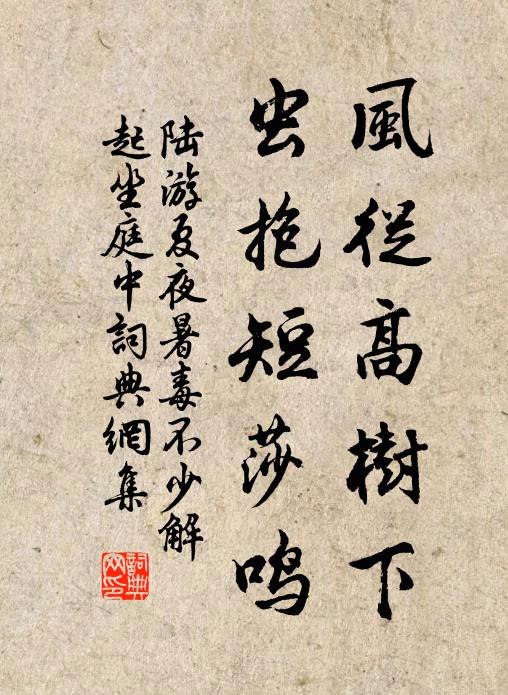 風從高樹下
虫抱短莎鸣
陆游夏夜暑毒不少解
起坐庭中詞典網集
詞典
网印